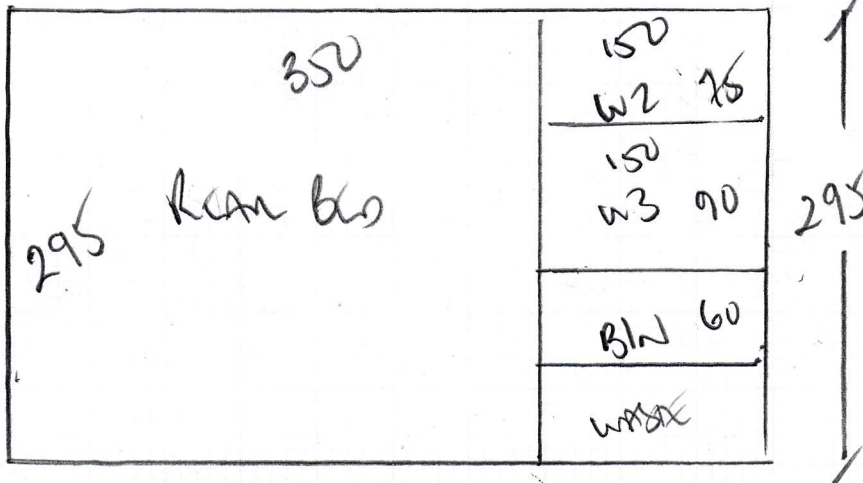 350
295 REAR BED
150
W2 75
150
W3 90
BIN 60
WASTE
295